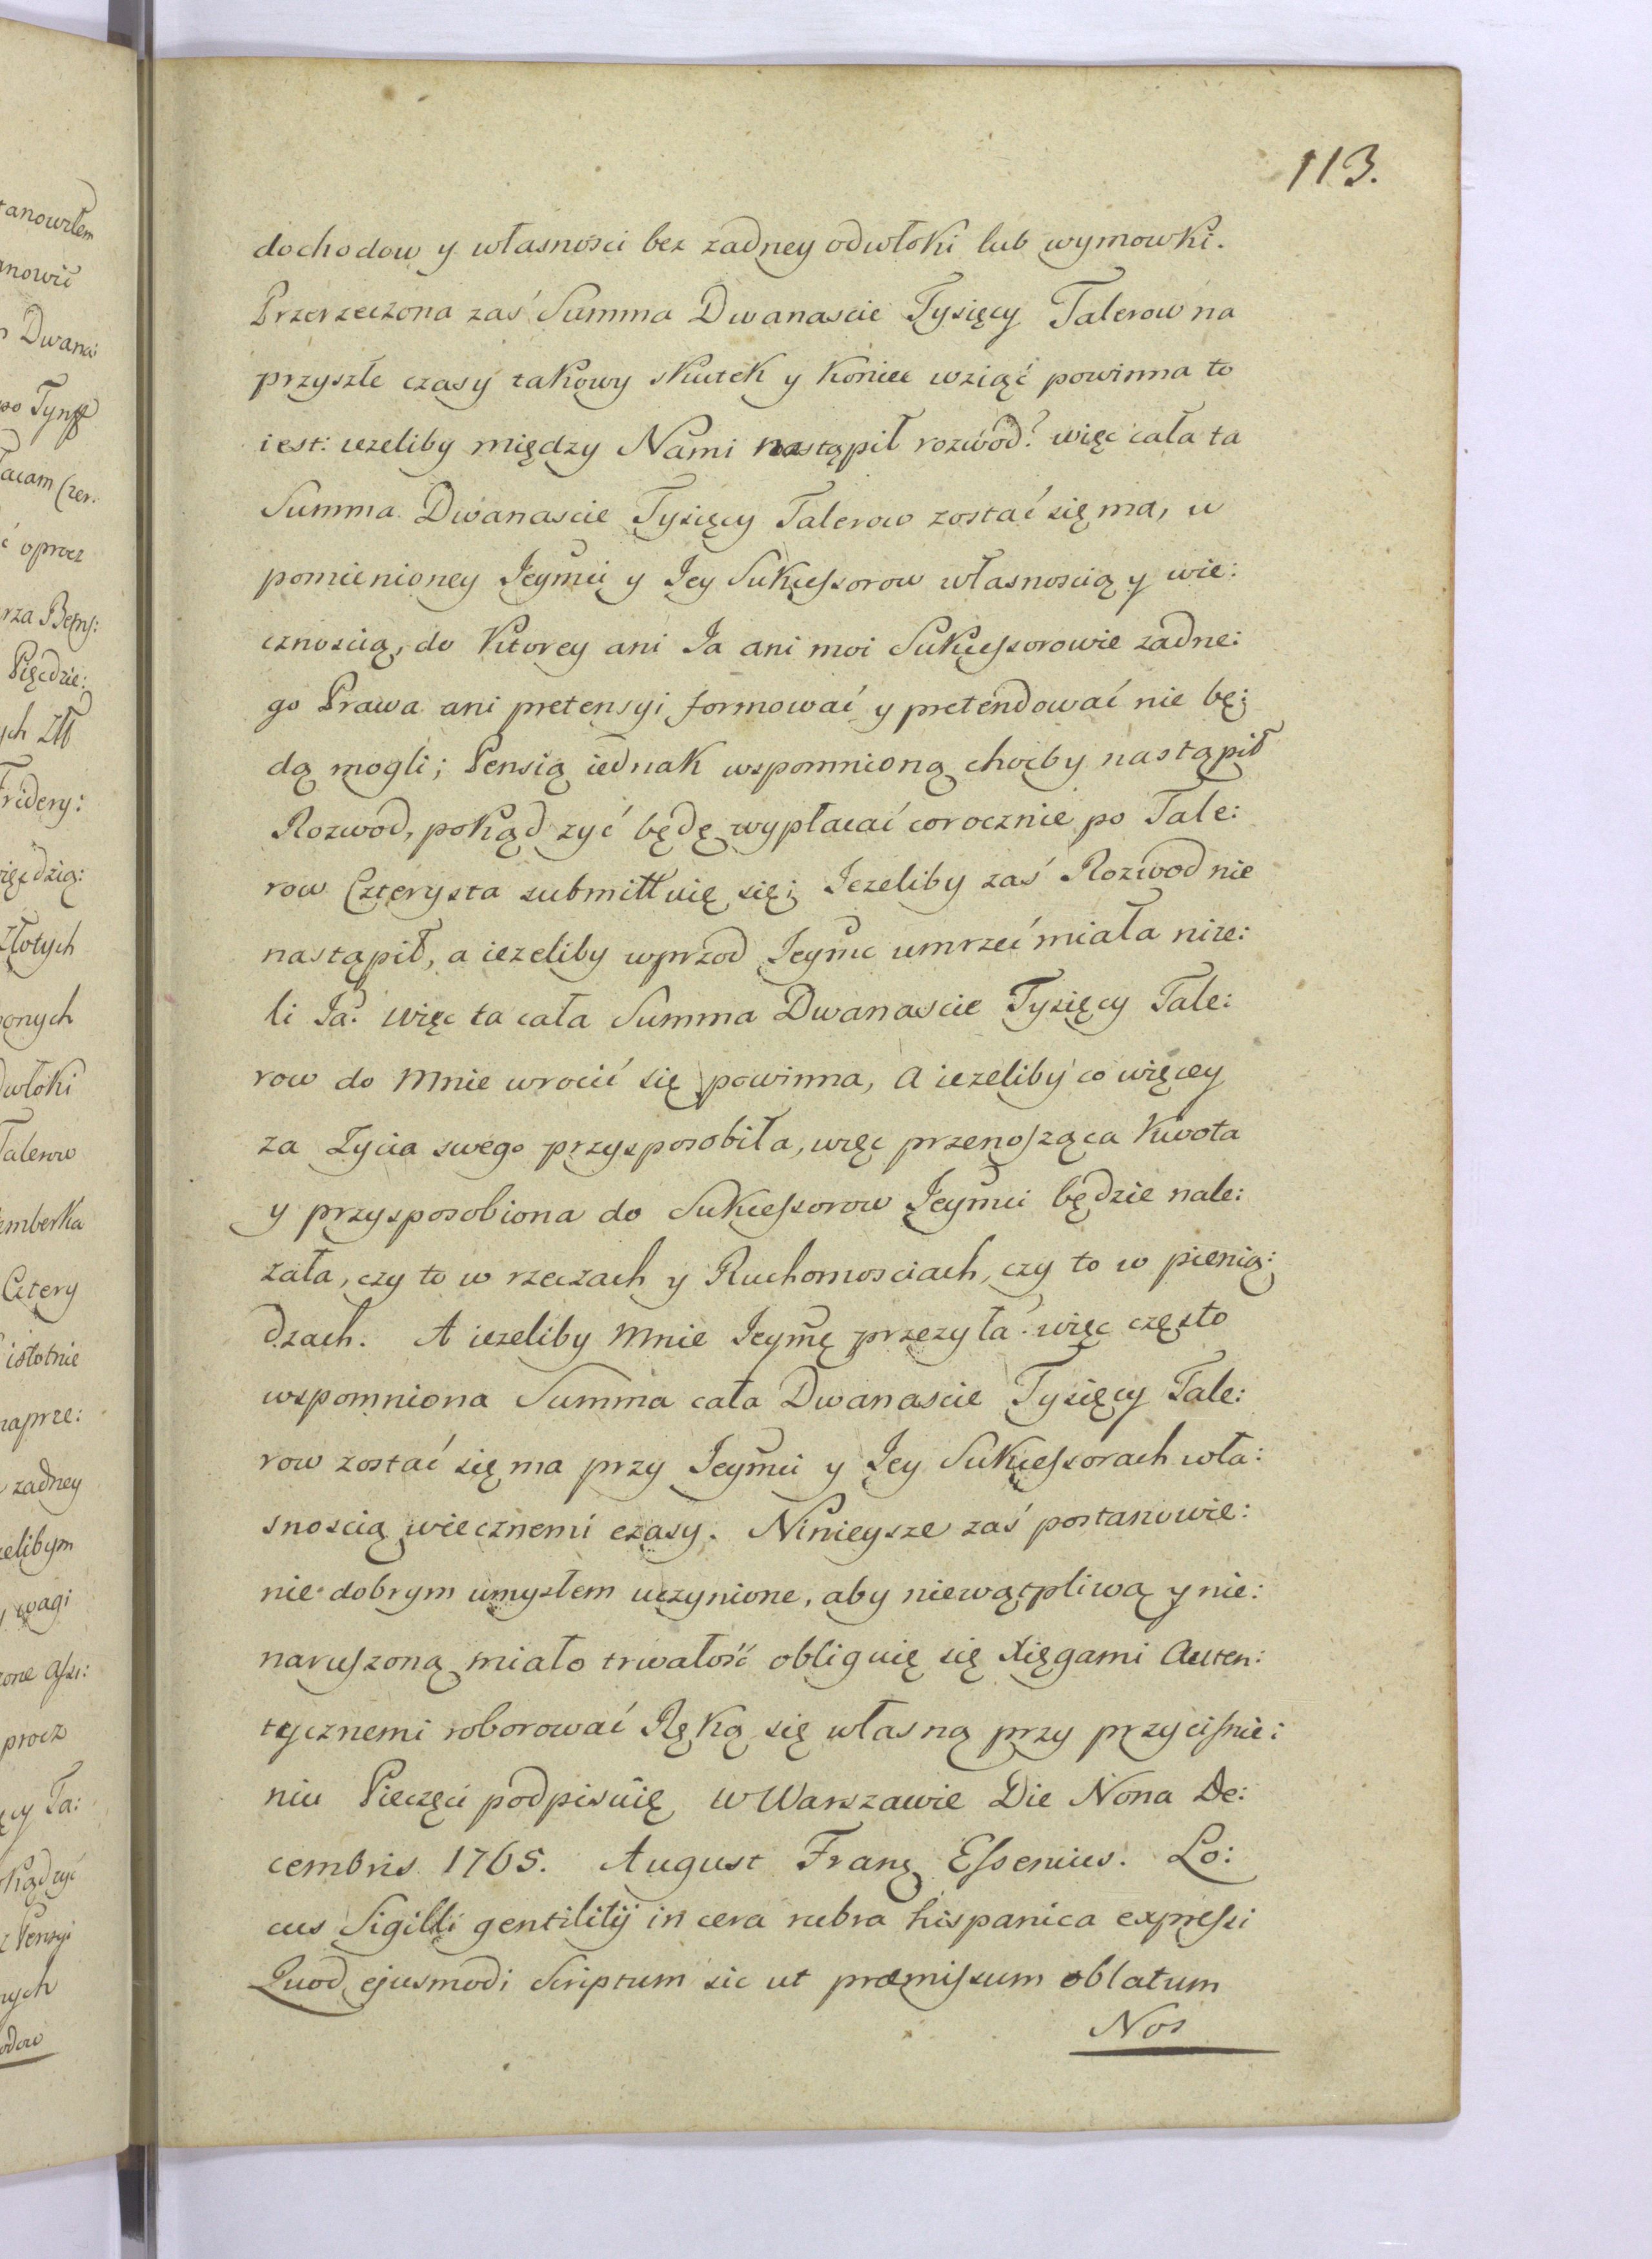 113.
dochodow y własności bez zadney odwłoki lub wymowki.
Przerzeczona zaś Summa Dwanascie Tysięcy Talerow na
przyszłe czasy takowy skutek y koniec wziąć powinna to
iest: iezeliby między Nami nastąpił rozwod? więc cała ta
Summa Dwanascie Tysięcy Talerow zostać się ma, w
pomienioney Jeymci y Jey Sukcessorow własnoscią y wie:
cznoscią, do Ktorey ani Ja ani moi Sukcessorowie zadne:
go Prawa ani pretensyi formować y pretendować nie bę:
dą mogli; Pensią iednak wspomnioną choćby nastąpił
Rozwod, pokąd zyć będę wypłacać corocznie po Tale:
row Czterysta submittuię się; Jezeliby zaś Rozwod nie
nastąpił, a iezeliby wprzod Jeymc umrzeć miała niże:
li Ja? więc ta cała Summa Dwanascie Tysięcy Tale:
row do Mnie wrocić się powinna, A iezeliby co więcey
za Zycia swego przysposobiła, więc przenosząca Kwota
y przysposobiona do Sukcessorow Jeymci będzie nale:
zała, czy to w rzeczach y Ruchomosciach, czy to w pienią:
dzach. A iezeliby Mnie Jeymę przezyła. więc często
wspomniona Summa cała Dwanascie Tysięcy Tale:
row zostać się ma przy Jeymci y Jey Sukcessorach wła:
snoscią wiecznemi czasy. Ninieysze zaś postanowie:
nie dobrym umysłem uczynione, aby niewątpliwą y nie:
naruszoną miało trwałość obliguię się Xięgami Auten:
tycznemi roborować Ręką się własną przy przycisnie:
niu Pieczęci podpisuię w Warszawie Die Nona De:
cembris 1765. August Franz Essenius. Lo:
cus Sigilli gentilitij in cera rubra hispanica expressi
Quod ejusmodi Scriptum sic ut præmissum oblatum
Nos